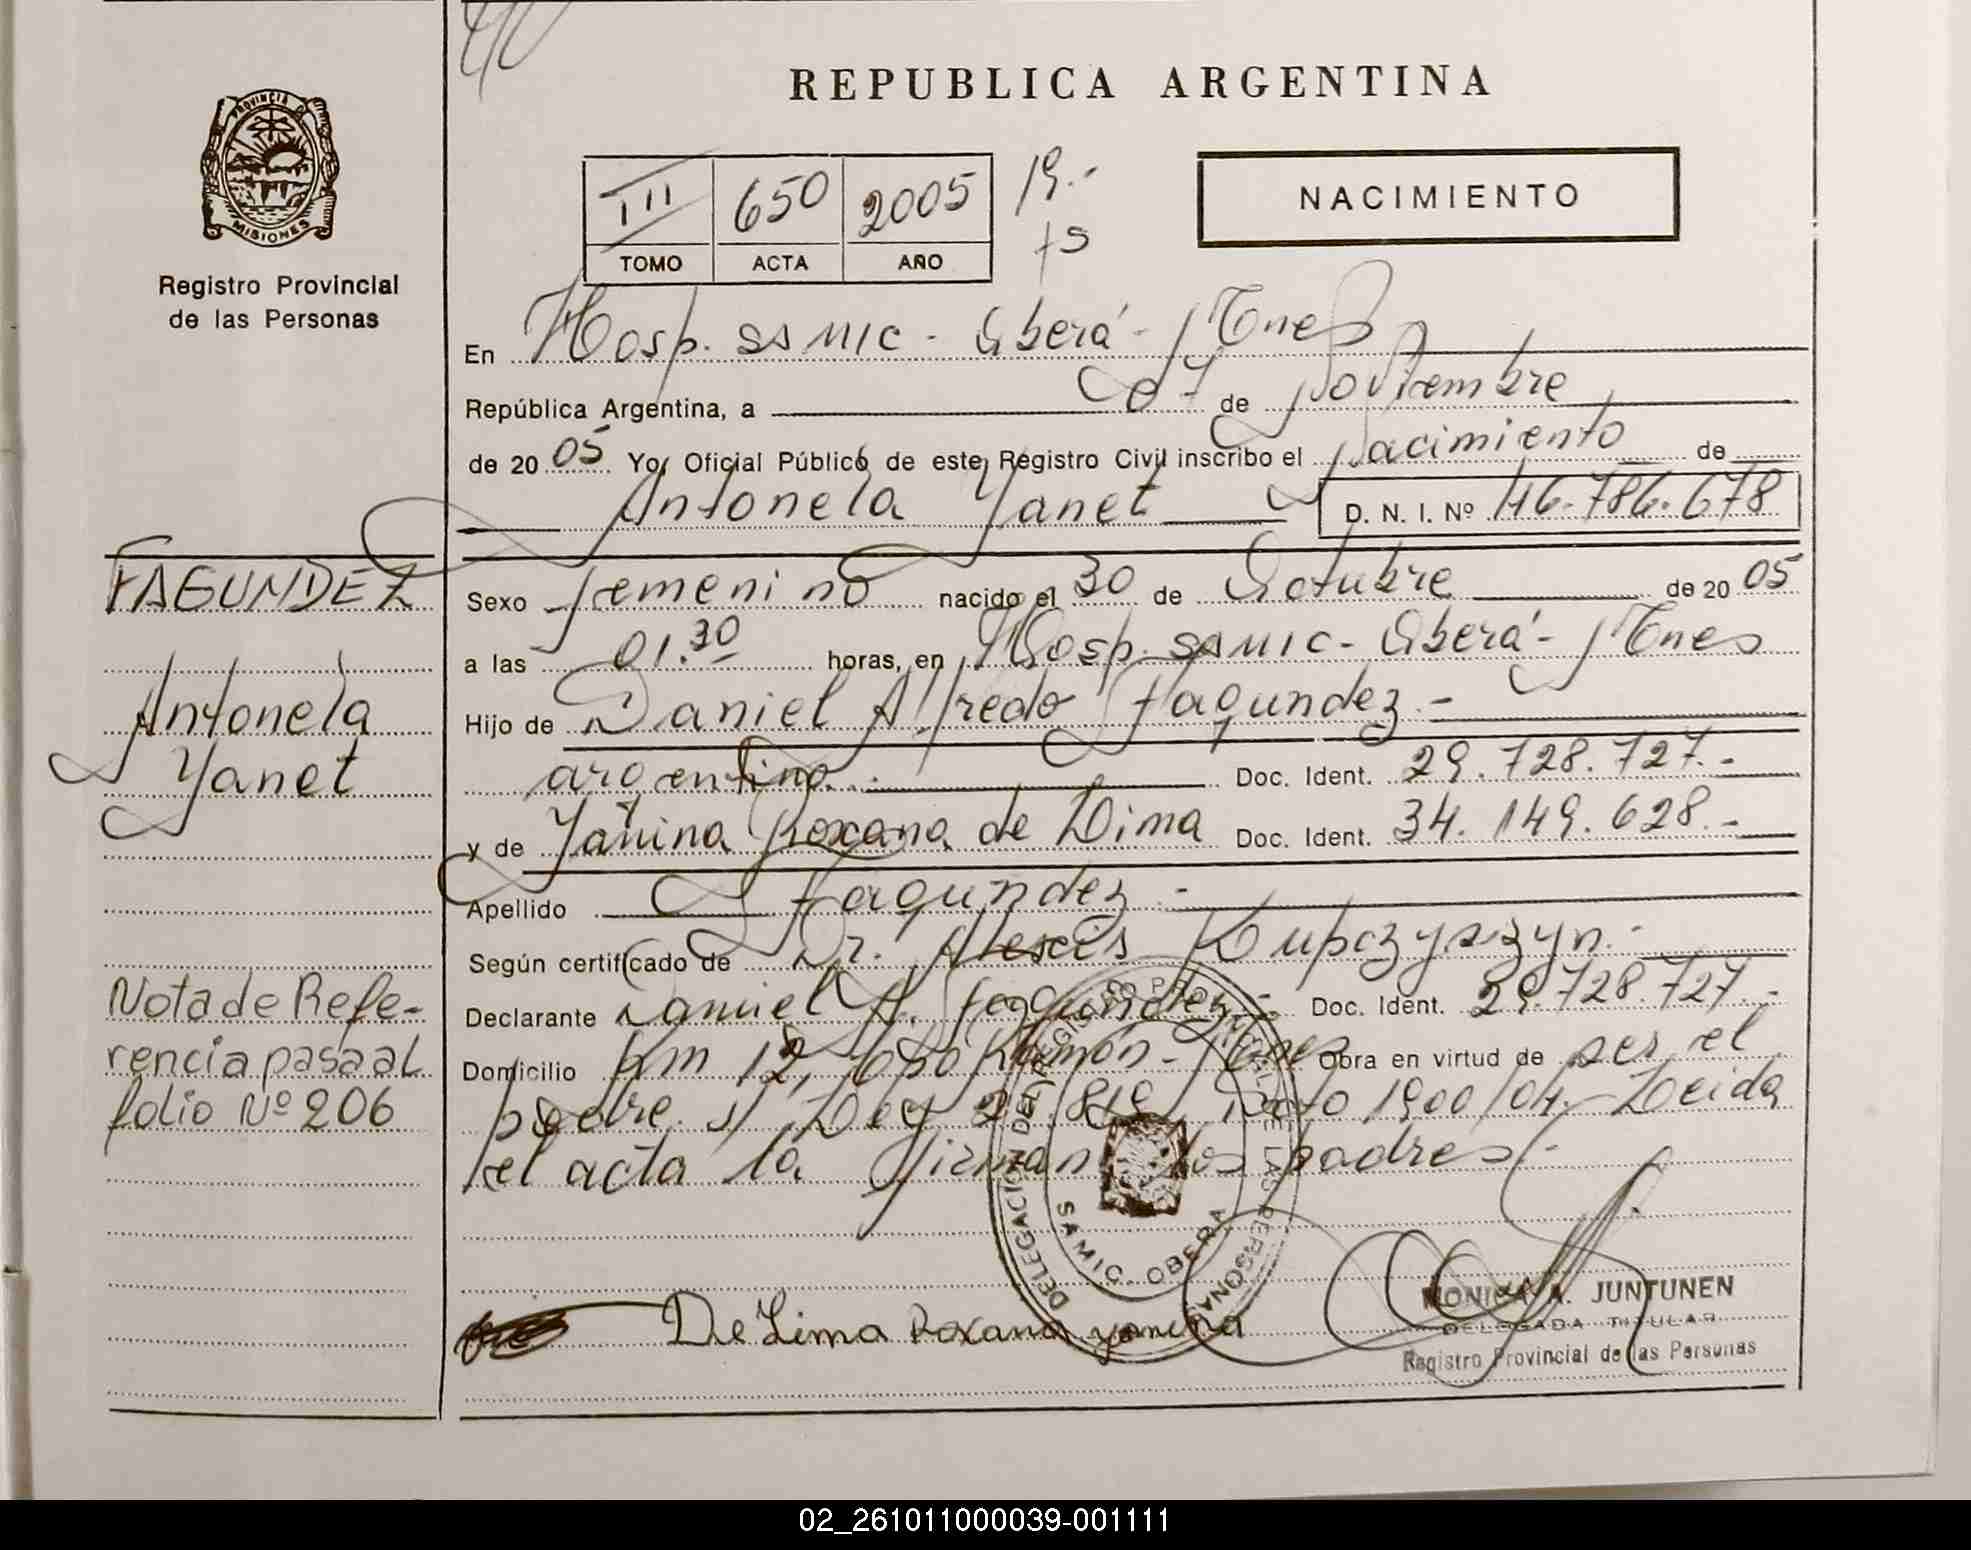 REPUBLICA ARGENTINA
PROVINCIA DE
MISIONES
Registro Provincial
de las Personas
III 650 2005 19.-
TOMO ACTA AÑO
NACIMIENTO
En Hosp. SAMIC - Oberá - Mnes
República Argentina, a 07 de Noviembre
de 2005 Yo, Oficial Público de este Registro Civil inscribo el Nacimiento de
Antonela Yanet D. N. I. Nº 46.786.678
FAGUNDEZ
Antonela
Yanet
Nota de Refe-
rencia pasa al
folio Nº 206
Sexo femenino nacido el 30 de Octubre de 2005
a las 01.30 horas, en Hosp. SAMIC - Oberá - Mnes
Hijo de Daniel Alfredo Fagundez.-
argentino.- Doc. Ident. 29.728.727.-
y de Yanina Roxana de Lima Doc. Ident. 34.149.628.-
Apellido Fagundez.-
Según certificado de Dr. Alexis Kupczyszyn.-
Declarante Daniel A. Fagundez.- Doc. Ident. 29.728.727.-
Domicilio Km 12, Cpo Ramón - Mnes Obra en virtud de ser el
padre s/ Ley 2.819, Dcto 1900/04. Leida
el acta la firman los padres.-
DELEGACION DEL REGISTRO PROVINCIAL DE LAS PERSONAS
SAMIC. OBERA
De Lima Roxana yanina
MONICA A. JUNTUNEN
DELEGADA TITULAR
Registro Provincial de las Personas
02_261011000039-001111